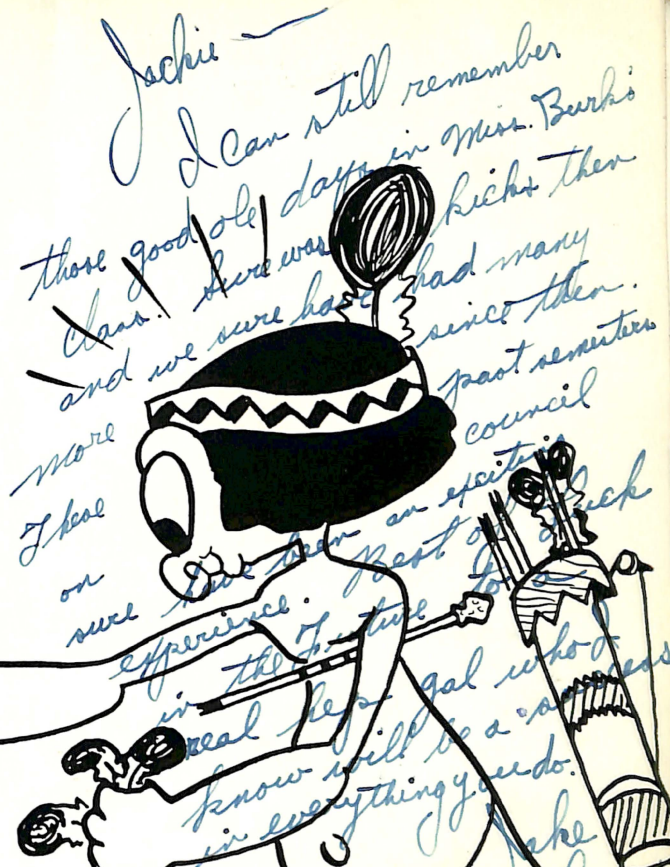 Jackie —
I can still remember
those good ole days in Miss. Burk's
class. Sure was kicks then
and we sure have had many
more since then.
These past semesters
on council
sure have been an exciting
experience. Best of luck
in the Future to a
real hep gal who I
know will be a success
in everything you do.